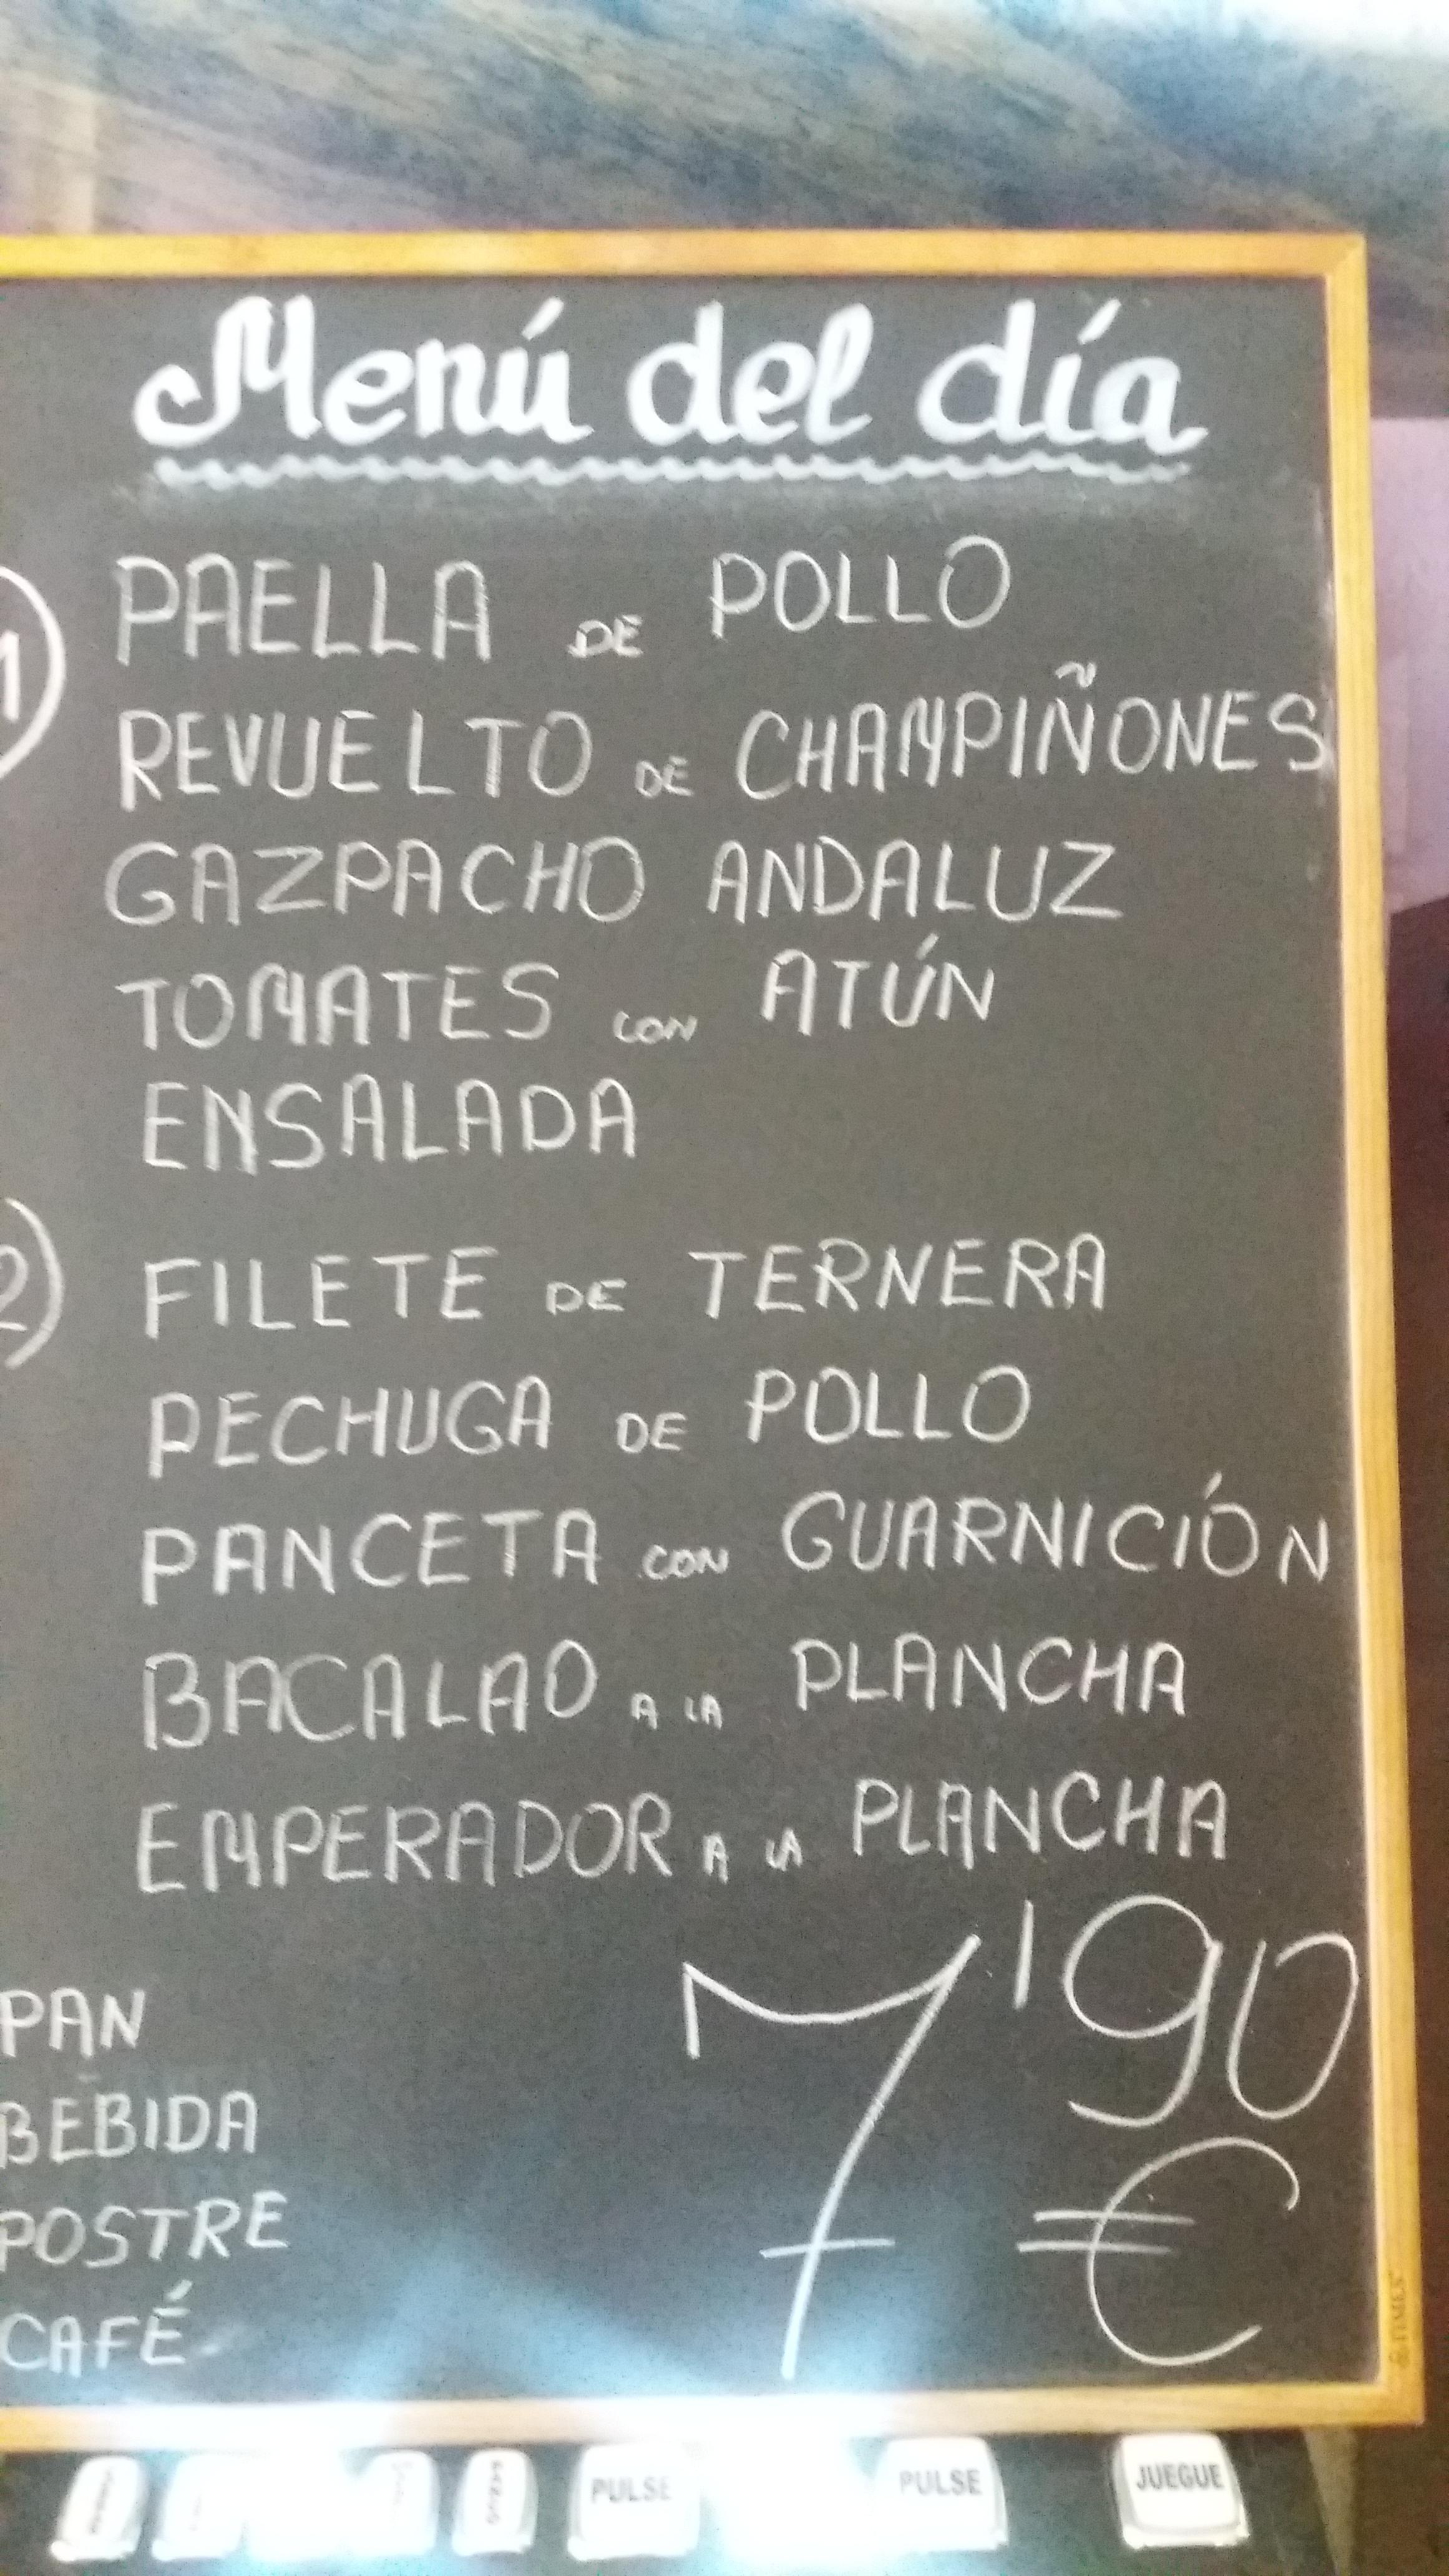 Menú del día
1) PAELLA DE POLLO
REVUELTO DE CHAMPIÑONES
GAZPACHO ANDALUZ
TOMATES CON ATÚN
ENSALADA
2) FILETE DE TERNERA
PECHUGA DE POLLO
PANCETA CON GUARNICIÓN
BACALAO A LA PLANCHA
EMPERADOR A LA PLANCHA
PAN
BEBIDA
POSTRE
CAFÉ
7'90 €
PULSE PULSE JUEGUE